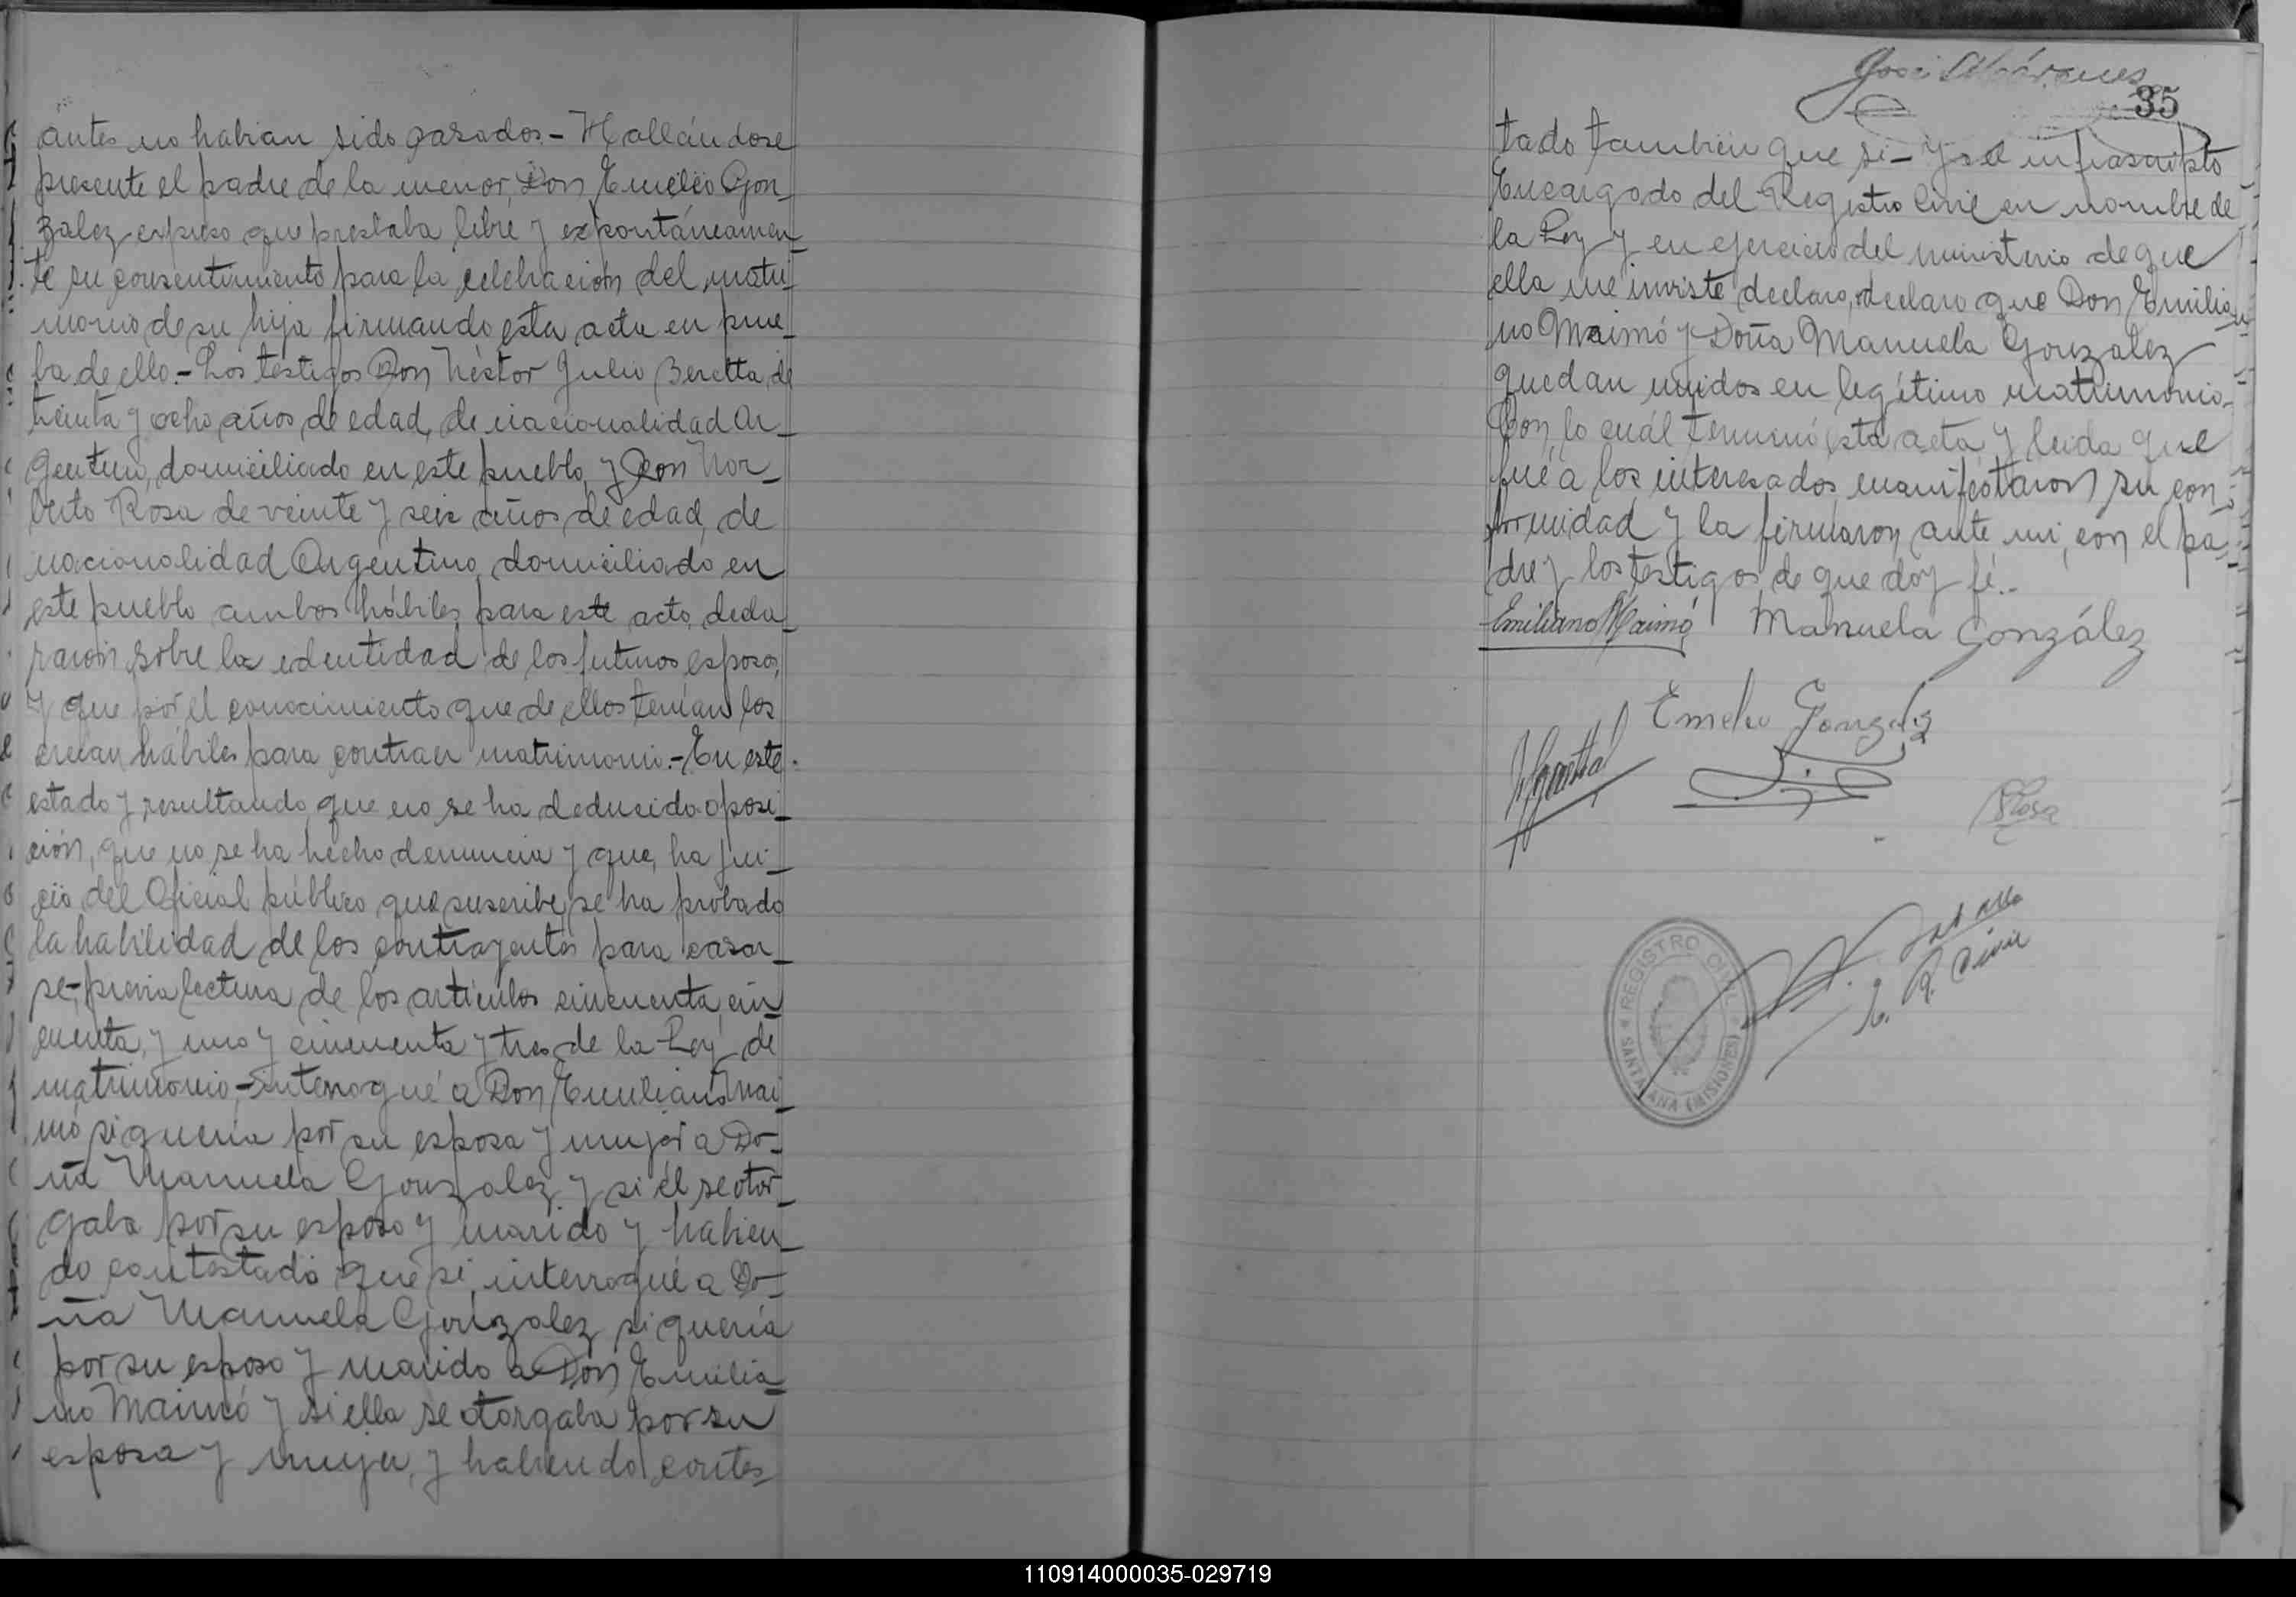 antes no habian sido casados.- Hallándose
presente el padre de la menor, Don Emilio Gon_
zalez expuso que prestaba libre y expontáneamen_
te su consentimiento para la celebración del matri_
monio de su hija firmando esta acta en prue_
ba de ello.- Los testigos Don Néstor Julio Beretta, de
treinta y ocho años de edad, de nacionalidad Ar_
gentino, domiciliado en este pueblo, y Don Nor_
berto Rosa de veinte y seis años de edad, de
nacionalidad Argentino, domiciliado en
este pueblo ambos hábiles para este acto, decla_
raron sobre la identidad de los futuros esposos,
y que por el conocimiento que de ellos tenían los
creían hábiles para contraer matrimonio.- En este
estado y resultando que no se ha deducido oposi_
ción, que no se ha hecho denuncia y que, ha jui_
cio del Oficial público que suscribe, se ha probado
la habilidad de los contrayentes para casar_
se, previa lectura de los artículos cincuenta, cin_
cuenta y uno y cincuenta y tres de la Ley de
matrimonio,- interrogué a Don Emiliano Mai_
mó si quería por su esposa y mujer a Do_
ña Manuela Gonzalez y si él se otor_
gaba por su esposo y marido y habien_
do contestado que si, interrogué a Do_
ña Manuela Gonzalez si quería
por su esposo y marido a Don Emilia_
no Maimó y si ella se otorgaba por su
esposa y mujer, y habiendo contes_
35
tado también que si- yo el infrascripto
Encargado del Registro Civil en nombre de
la Ley y en ejercicio del ministerio de que
ella me inviste declaro, declaro que Don Emilia_
no Maimó y Doña Manuela Gonzalez
quedan unidos en legítimo matrimonio.
Con lo cuál terminó esta acta y leida que
fué a los interesados manifestaron su con_
formidad y la firmaron ante mi, con el pa_
dre y los testigos de que doy fé.-
Emiliano Maimó Manuela González
Emilio Gonzalez
Rosa
E. R. Civil
REGISTRO CIVIL
SANTA ANA (MISIONES)
110914000035-029719